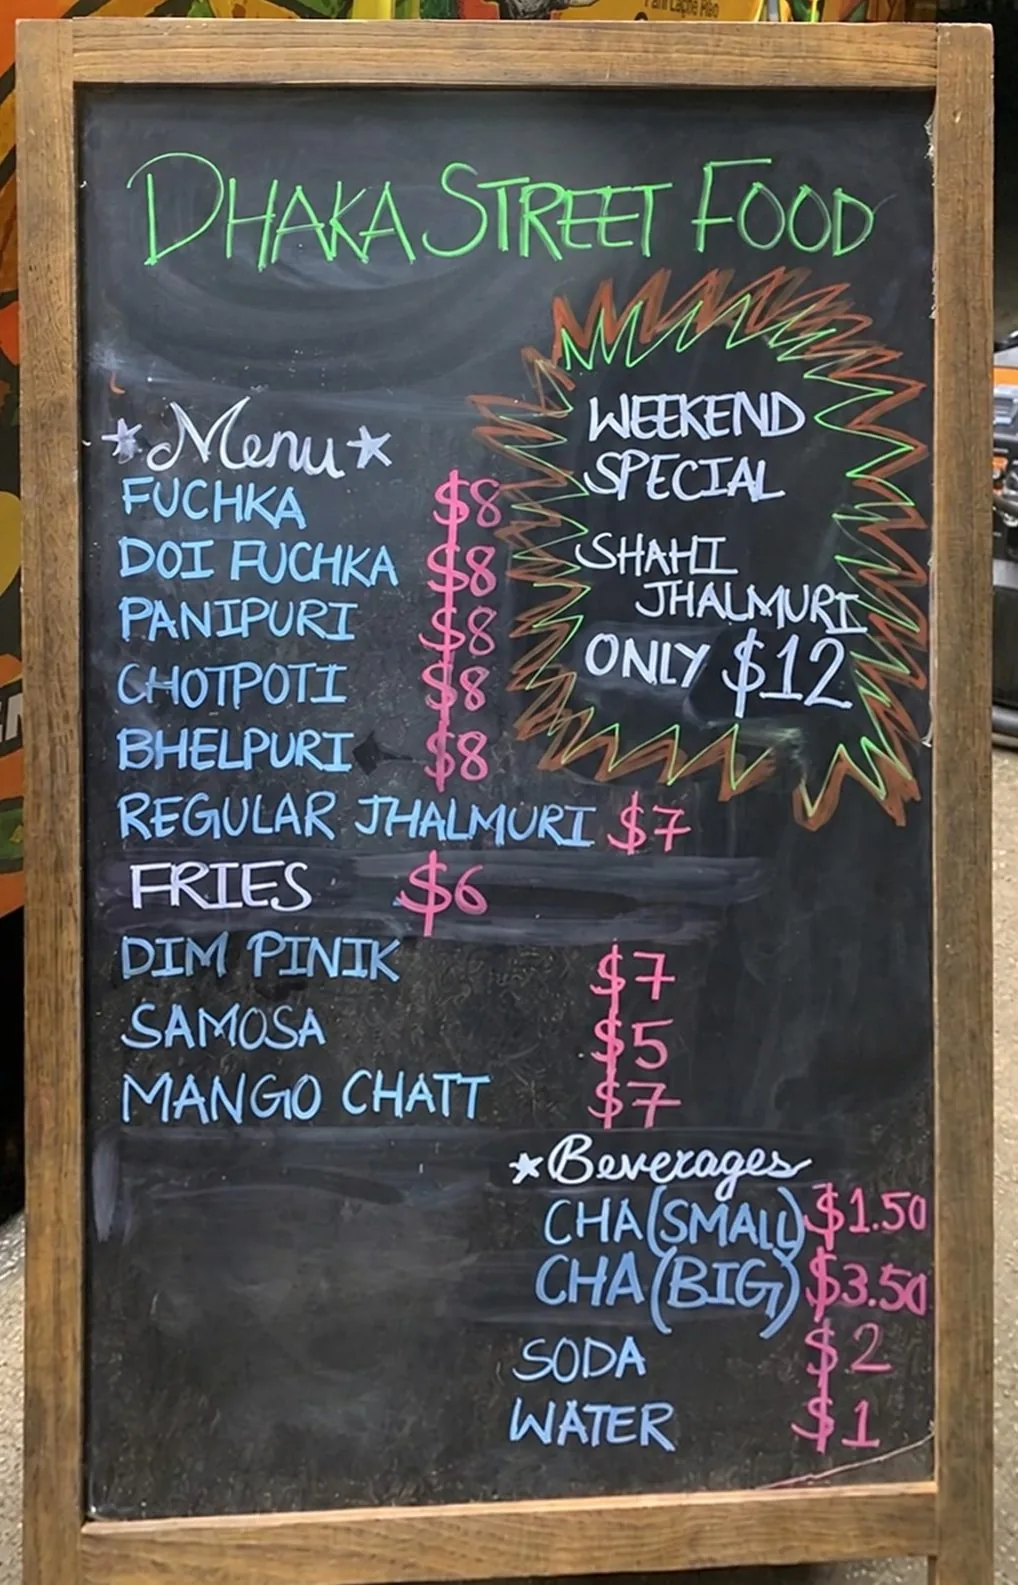 DHAKA STREET FOOD
WEEKEND
SPECIAL
SHAHI
JHALMURI
ONLY $12
Menu
FUCHKA $8
DOI FUCHKA $8
PANIPURI $8
CHOTPOTI $8
BHELPURI $8
REGULAR JHALMURI $7
FRIES $6
DIM PINIK $7
SAMOSA $5
MANGO CHATT $7
Beverages
CHA (SMALL) $1.50
CHA (BIG) $3.50
SODA $2
WATER $1